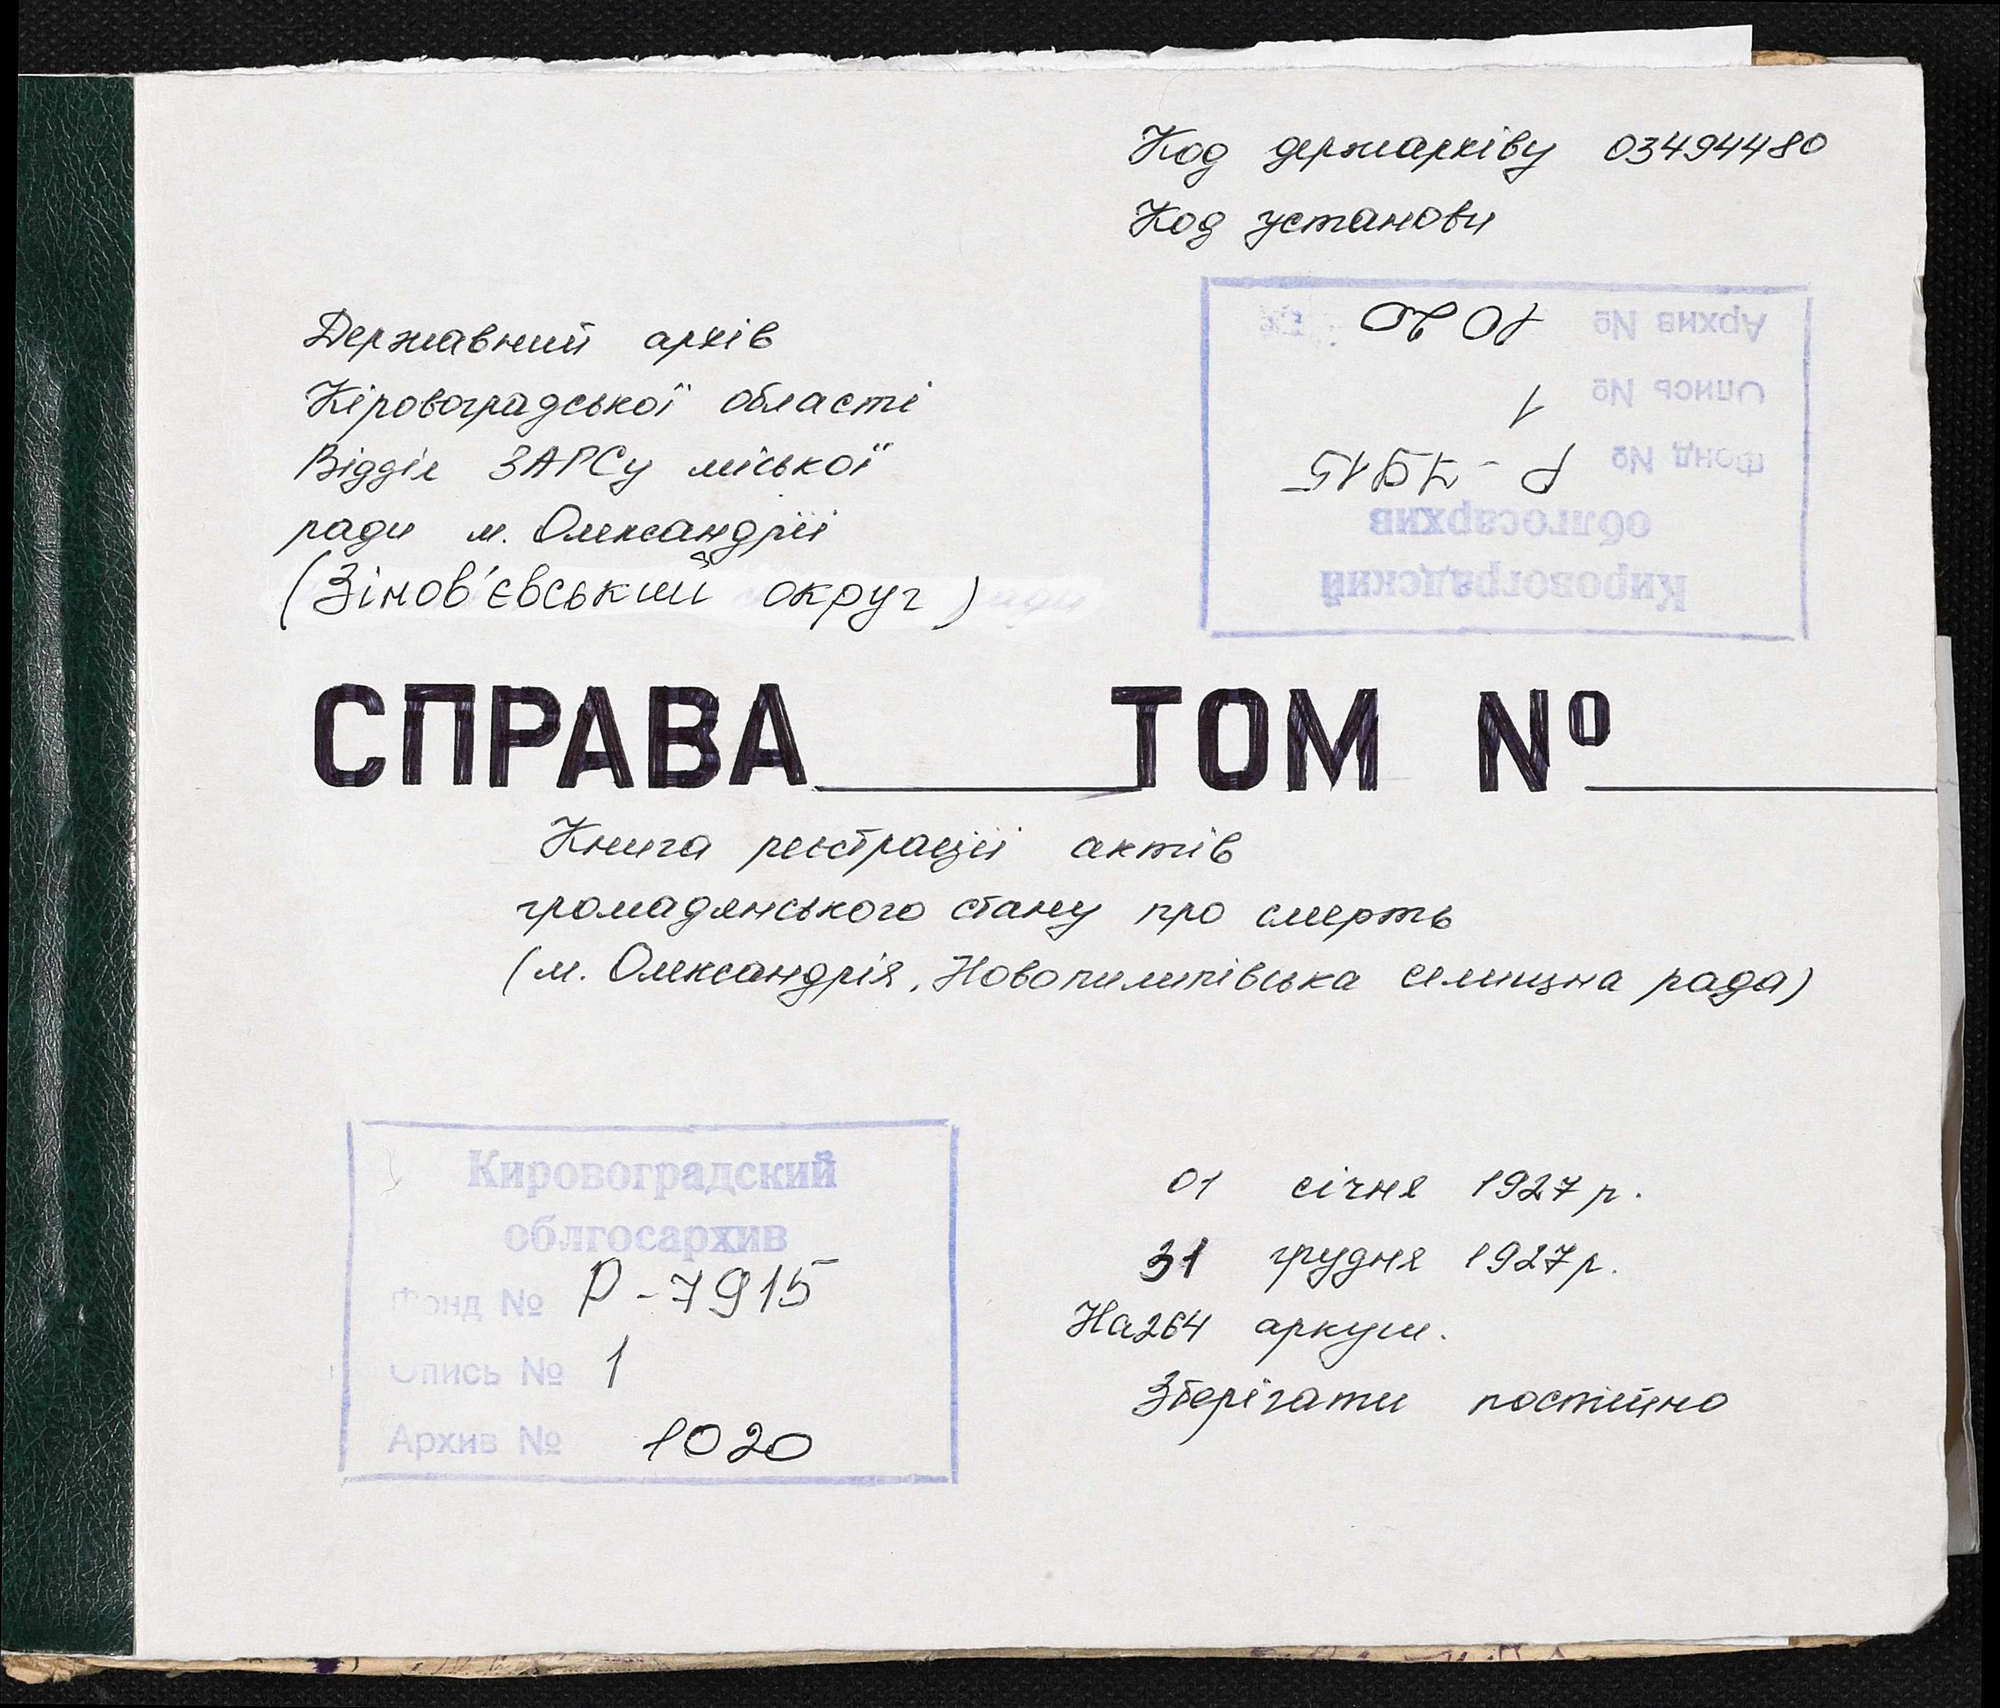 Код держархіву 03494480
Код установи
Архив № 1020
Опись № 1
Фонд № Р-7915
облгосархив
Кировоградский
Державний архів
Кіровоградської області
Відділ ЗАГСу міської
ради м. Олександрії
(Зінов'євський округ)
СПРАВА ТОМ №
Книга реєстрації актів
громадянського стану про смерть
(м. Олександрія, Новопилипівська селищна рада)
Кировоградский
облгосархив
Фонд № Р-7915
Опись № 1
Архив № 1020
01 січня 1927 р.
31 грудня 1927 р.
На 264 аркуш.
Зберігати постійно